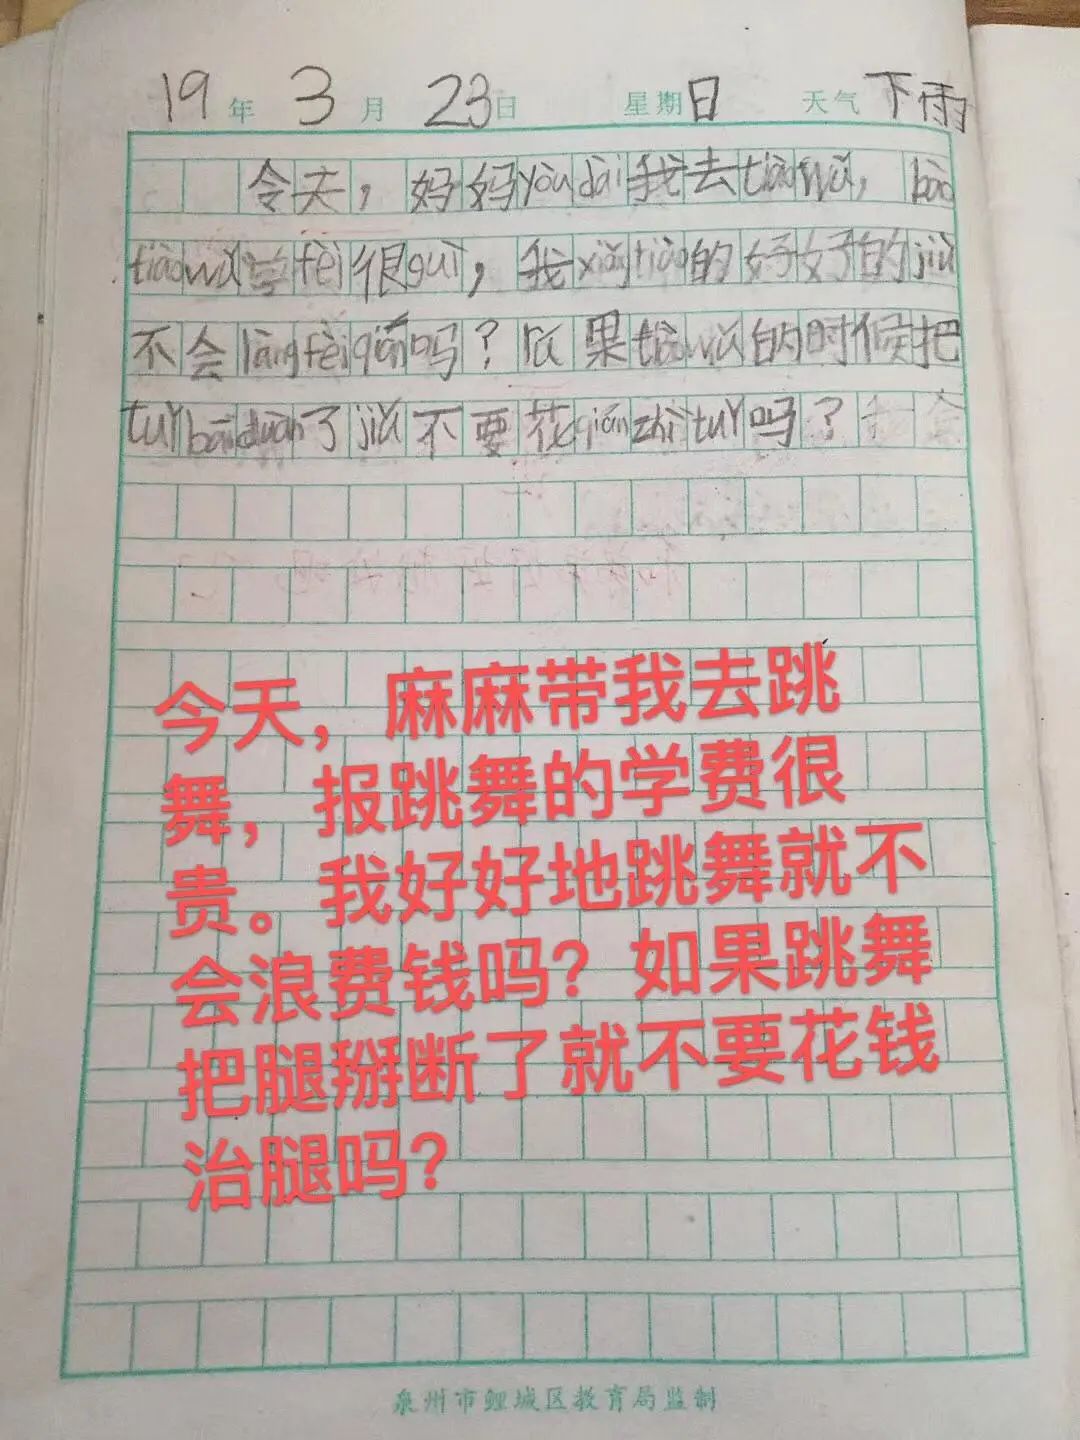 19年 3月 23日 星期日 天气 下雨
今天，妈妈yòu dài我去tiàowǔ，bào
tiàowǔ学fèi很guì，我xiǎngtiào的好好的jiù
不会làngfèiqián吗？rú果tiàowǔ的时候把
tuǐbāiduàn了jiù不要花qiánzhìtuǐ吗？
今天，麻麻带我去跳
舞，报跳舞的学费很
贵。我好好地跳舞就不
会浪费钱吗？如果跳舞
把腿掰断了就不要花钱
治腿吗？
泉州市鲤城区教育局监制